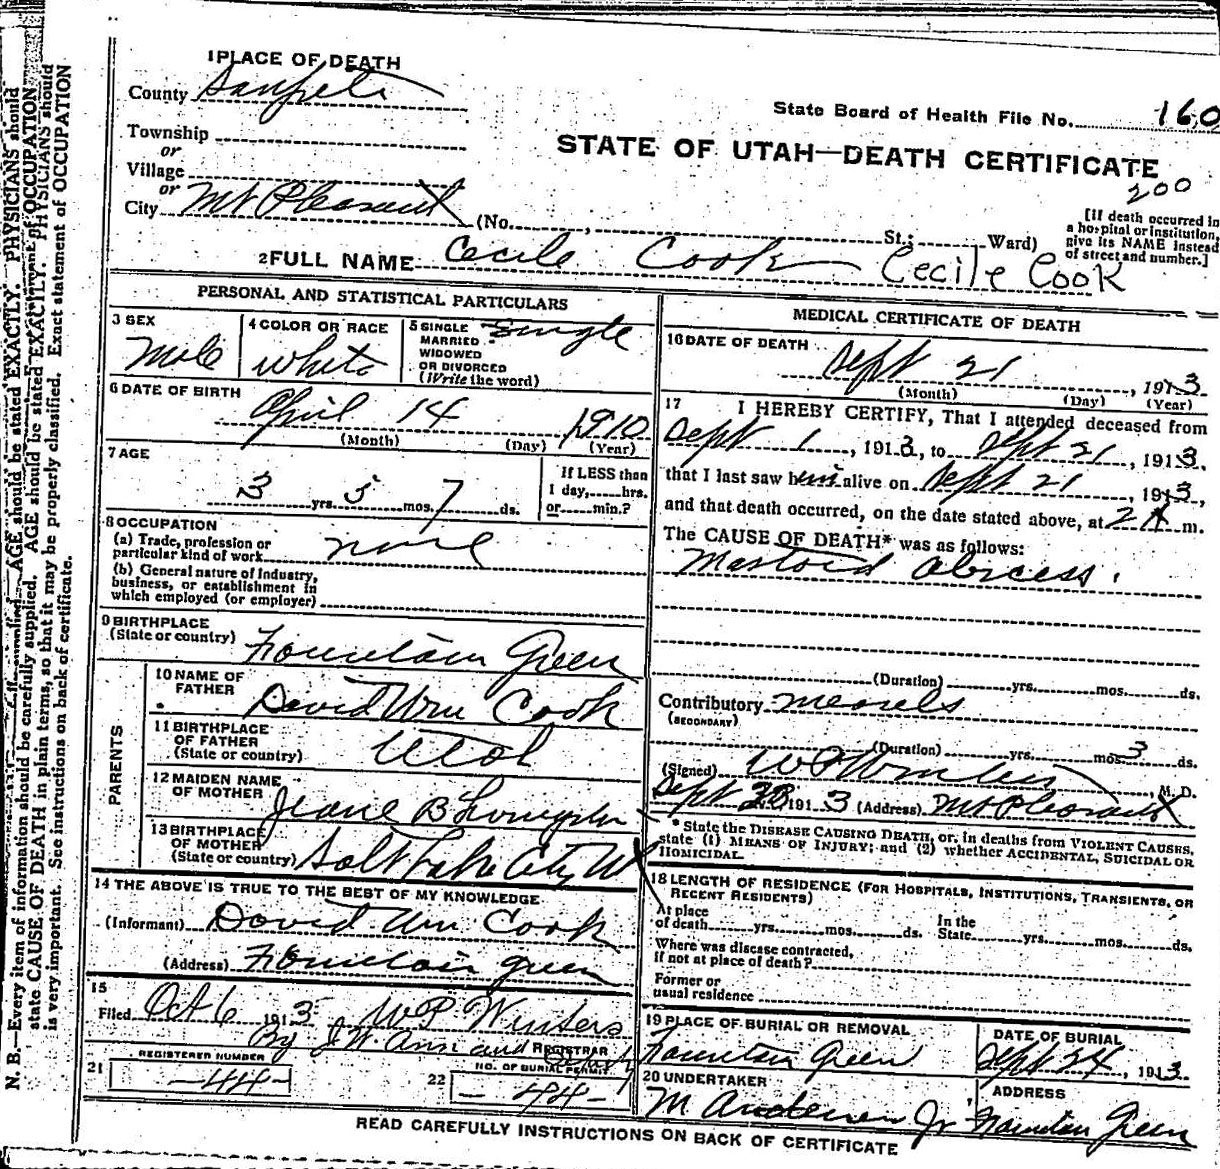 1 PLACE OF DEATH
County Sanpete
State Board of Health File No. 160
Township
or
STATE OF UTAH—DEATH CERTIFICATE
200
Village
or
City Mt Pleasant (No. St.; Ward)
[If death occurred in a hospital or institution, give its NAME instead of street and number.]
2 FULL NAME Cecile Cook Cecile Cook
PERSONAL AND STATISTICAL PARTICULARS
3 SEX
Male
4 COLOR OR RACE
White
5 SINGLE
MARRIED
WIDOWED
OR DIVORCED
(Write the word)
Single
6 DATE OF BIRTH
April 14 1910
(Month) (Day) (Year)
7 AGE
3 yrs. 5 mos. 7 ds.
If LESS than
1 day, hrs.
or min.?
8 OCCUPATION
(a) Trade, profession or
particular kind of work none
(b) General nature of industry,
business, or establishment in
which employed (or employer)
9 BIRTHPLACE
(State or country) Fountain Green
PARENTS
10 NAME OF
FATHER David Wm Cook
11 BIRTHPLACE
OF FATHER
(State or country) Utah
12 MAIDEN NAME
OF MOTHER Jeane B
13 BIRTHPLACE
OF MOTHER
(State or country) Salt Lake City
14 THE ABOVE IS TRUE TO THE BEST OF MY KNOWLEDGE
(Informant) David Wm Cook
(Address) Fountain Green
15
Filed Oct 6 1913 W P Winters
By J W Ann and
REGISTRAR
21 REGISTERED NUMBER
—44—
22 NO. OF BURIAL PERMIT
—44—
MEDICAL CERTIFICATE OF DEATH
16 DATE OF DEATH
Sept 21, 1913
(Month) (Day) (Year)
17 I HEREBY CERTIFY, That I attended deceased from
Sept 1, 1913, to Sept 21, 1913,
that I last saw him alive on Sept 21, 1913,
and that death occurred, on the date stated above, at 2 A m.
The CAUSE OF DEATH* was as follows:
Mastoid abscess.
(Duration) yrs. mos. ds.
Contributory measels
(SECONDARY)
(Duration) yrs. mos. 3 ds.
(Signed) W P Winters, M. D.
Sept 1913 (Address) Mt Pleasant
* State the DISEASE CAUSING DEATH, or, in deaths from VIOLENT CAUSES,
state (1) MEANS OF INJURY; and (2) whether ACCIDENTAL, SUICIDAL OR
HOMICIDAL.
18 LENGTH OF RESIDENCE (FOR HOSPITALS, INSTITUTIONS, TRANSIENTS, OR
RECENT RESIDENTS)
At place
of death yrs. mos. ds.
In the
State yrs. mos. ds.
Where was disease contracted,
if not at place of death?
Former or
usual residence
19 PLACE OF BURIAL OR REMOVAL
Fountain Green
DATE OF BURIAL
Sept 24, 1913
20 UNDERTAKER
M Anderson Jr
ADDRESS
Fountain Green
READ CAREFULLY INSTRUCTIONS ON BACK OF CERTIFICATE
N. B.—Every item of information should be carefully supplied. AGE should be stated EXACTLY. PHYSICIANS should
state CAUSE OF DEATH in plain terms, so that it may be properly classified. Exact statement of OCCUPATION
is very important. See instructions on back of certificate.